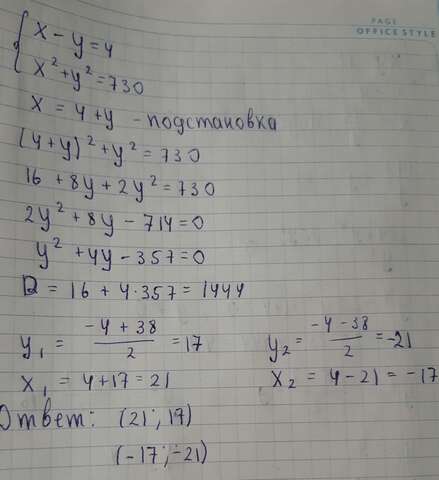 PAGE
OFFICE STYLE
x - y = 4
x² + y² = 730
x = 4 + y - подстановка
(4 + y)² + y² = 730
16 + 8y + 2y² = 730
2y² + 8y - 714 = 0
y² + 4y - 357 = 0
D = 16 + 4·357 = 1444
y₁ = (-4 + 38)/2 = 17 y₂ = (-4 - 38)/2 = -21
x₁ = 4 + 17 = 21 x₂ = 4 - 21 = -17
Ответ: (21; 17)
(-17; -21)